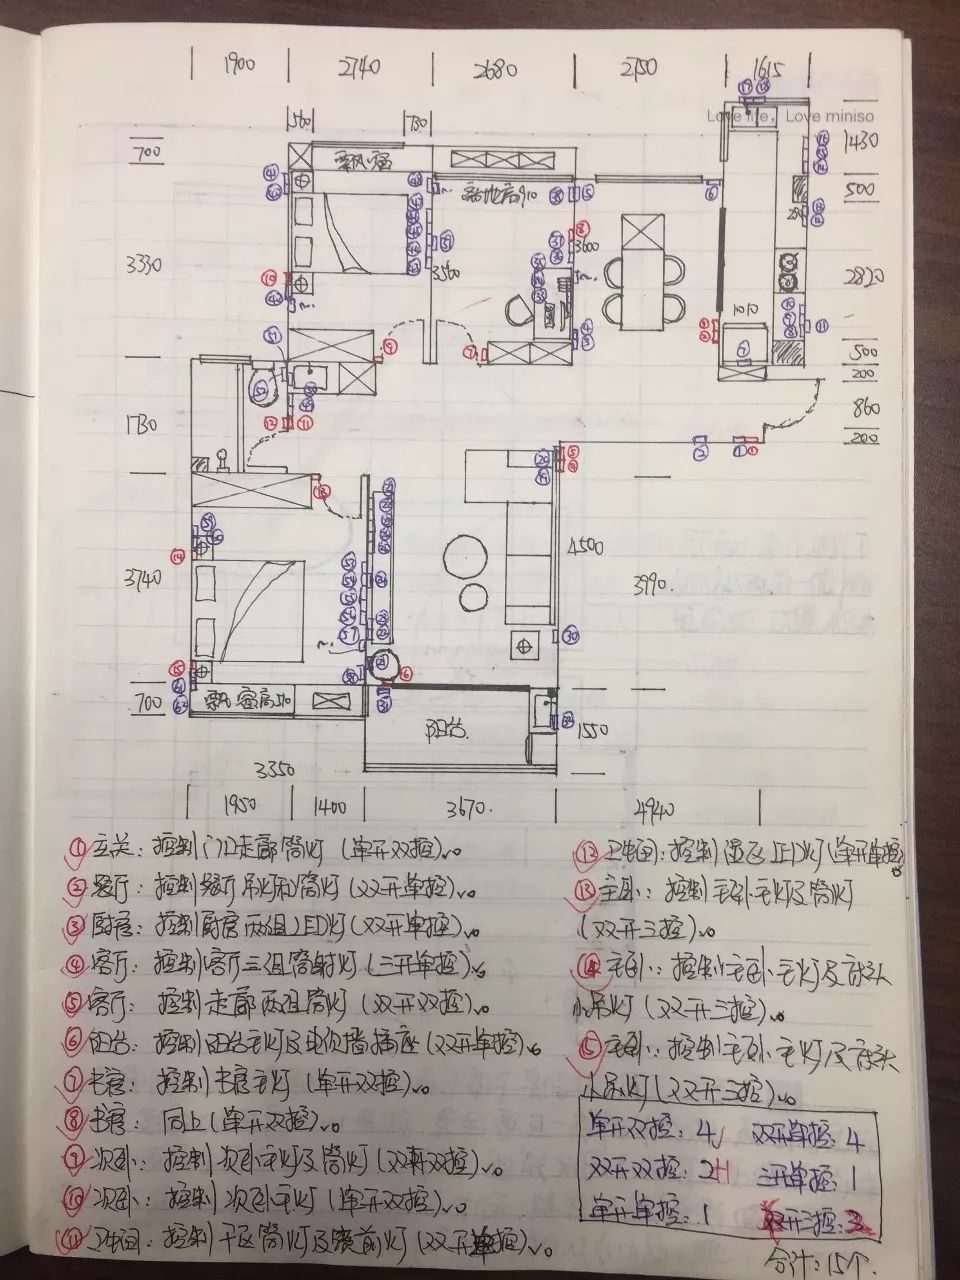 1900 2740 2680 2750 1615
Love life，Love miniso
560 730
700 飘窗 1430
离地高910 500
3330 3560 3600 2820
1010
500
200
1730 860
200
4500
3740 3990.
700 飘窗高510 阳台. 1550
3350
1950 1400 3670. 4940
① 玄关: 控制门口走廊筒灯 (单开双控)
② 餐厅: 控制餐厅吊灯和筒灯 (双开单控)
③ 厨房: 控制厨房两组LED灯 (双开单控)
④ 客厅: 控制客厅三组筒射灯 (三开单控)
⑤ 客厅: 控制走廊两组筒灯 (双开双控)
⑥ 阳台: 控制阳台主灯及电视墙插座 (双开单控)
⑦ 书房: 控制书房主灯 (单开双控)
⑧ 书房: 同上 (单开双控)
⑨ 次卧: 控制次卧主灯及筒灯 (双开双控)
⑩ 次卧: 控制次卧主灯 (单开双控)
⑪ 卫生间: 控制干区筒灯及镜前灯 (双开单控)
⑫ 卫生间: 控制湿区LED灯 (单开单控)
⑬ 主卧: 控制主卧主灯及筒灯
(双开三控)
⑭ 主卧: 控制主卧主灯及床头
小吊灯 (双开三控)
⑮ 主卧: 控制主卧主灯及床头
小吊灯 (双开三控)
单开双控: 4 双开单控: 4
双开双控: 2 三开单控: 1
单开单控: 1 双开三控: 3
合计: 15个.